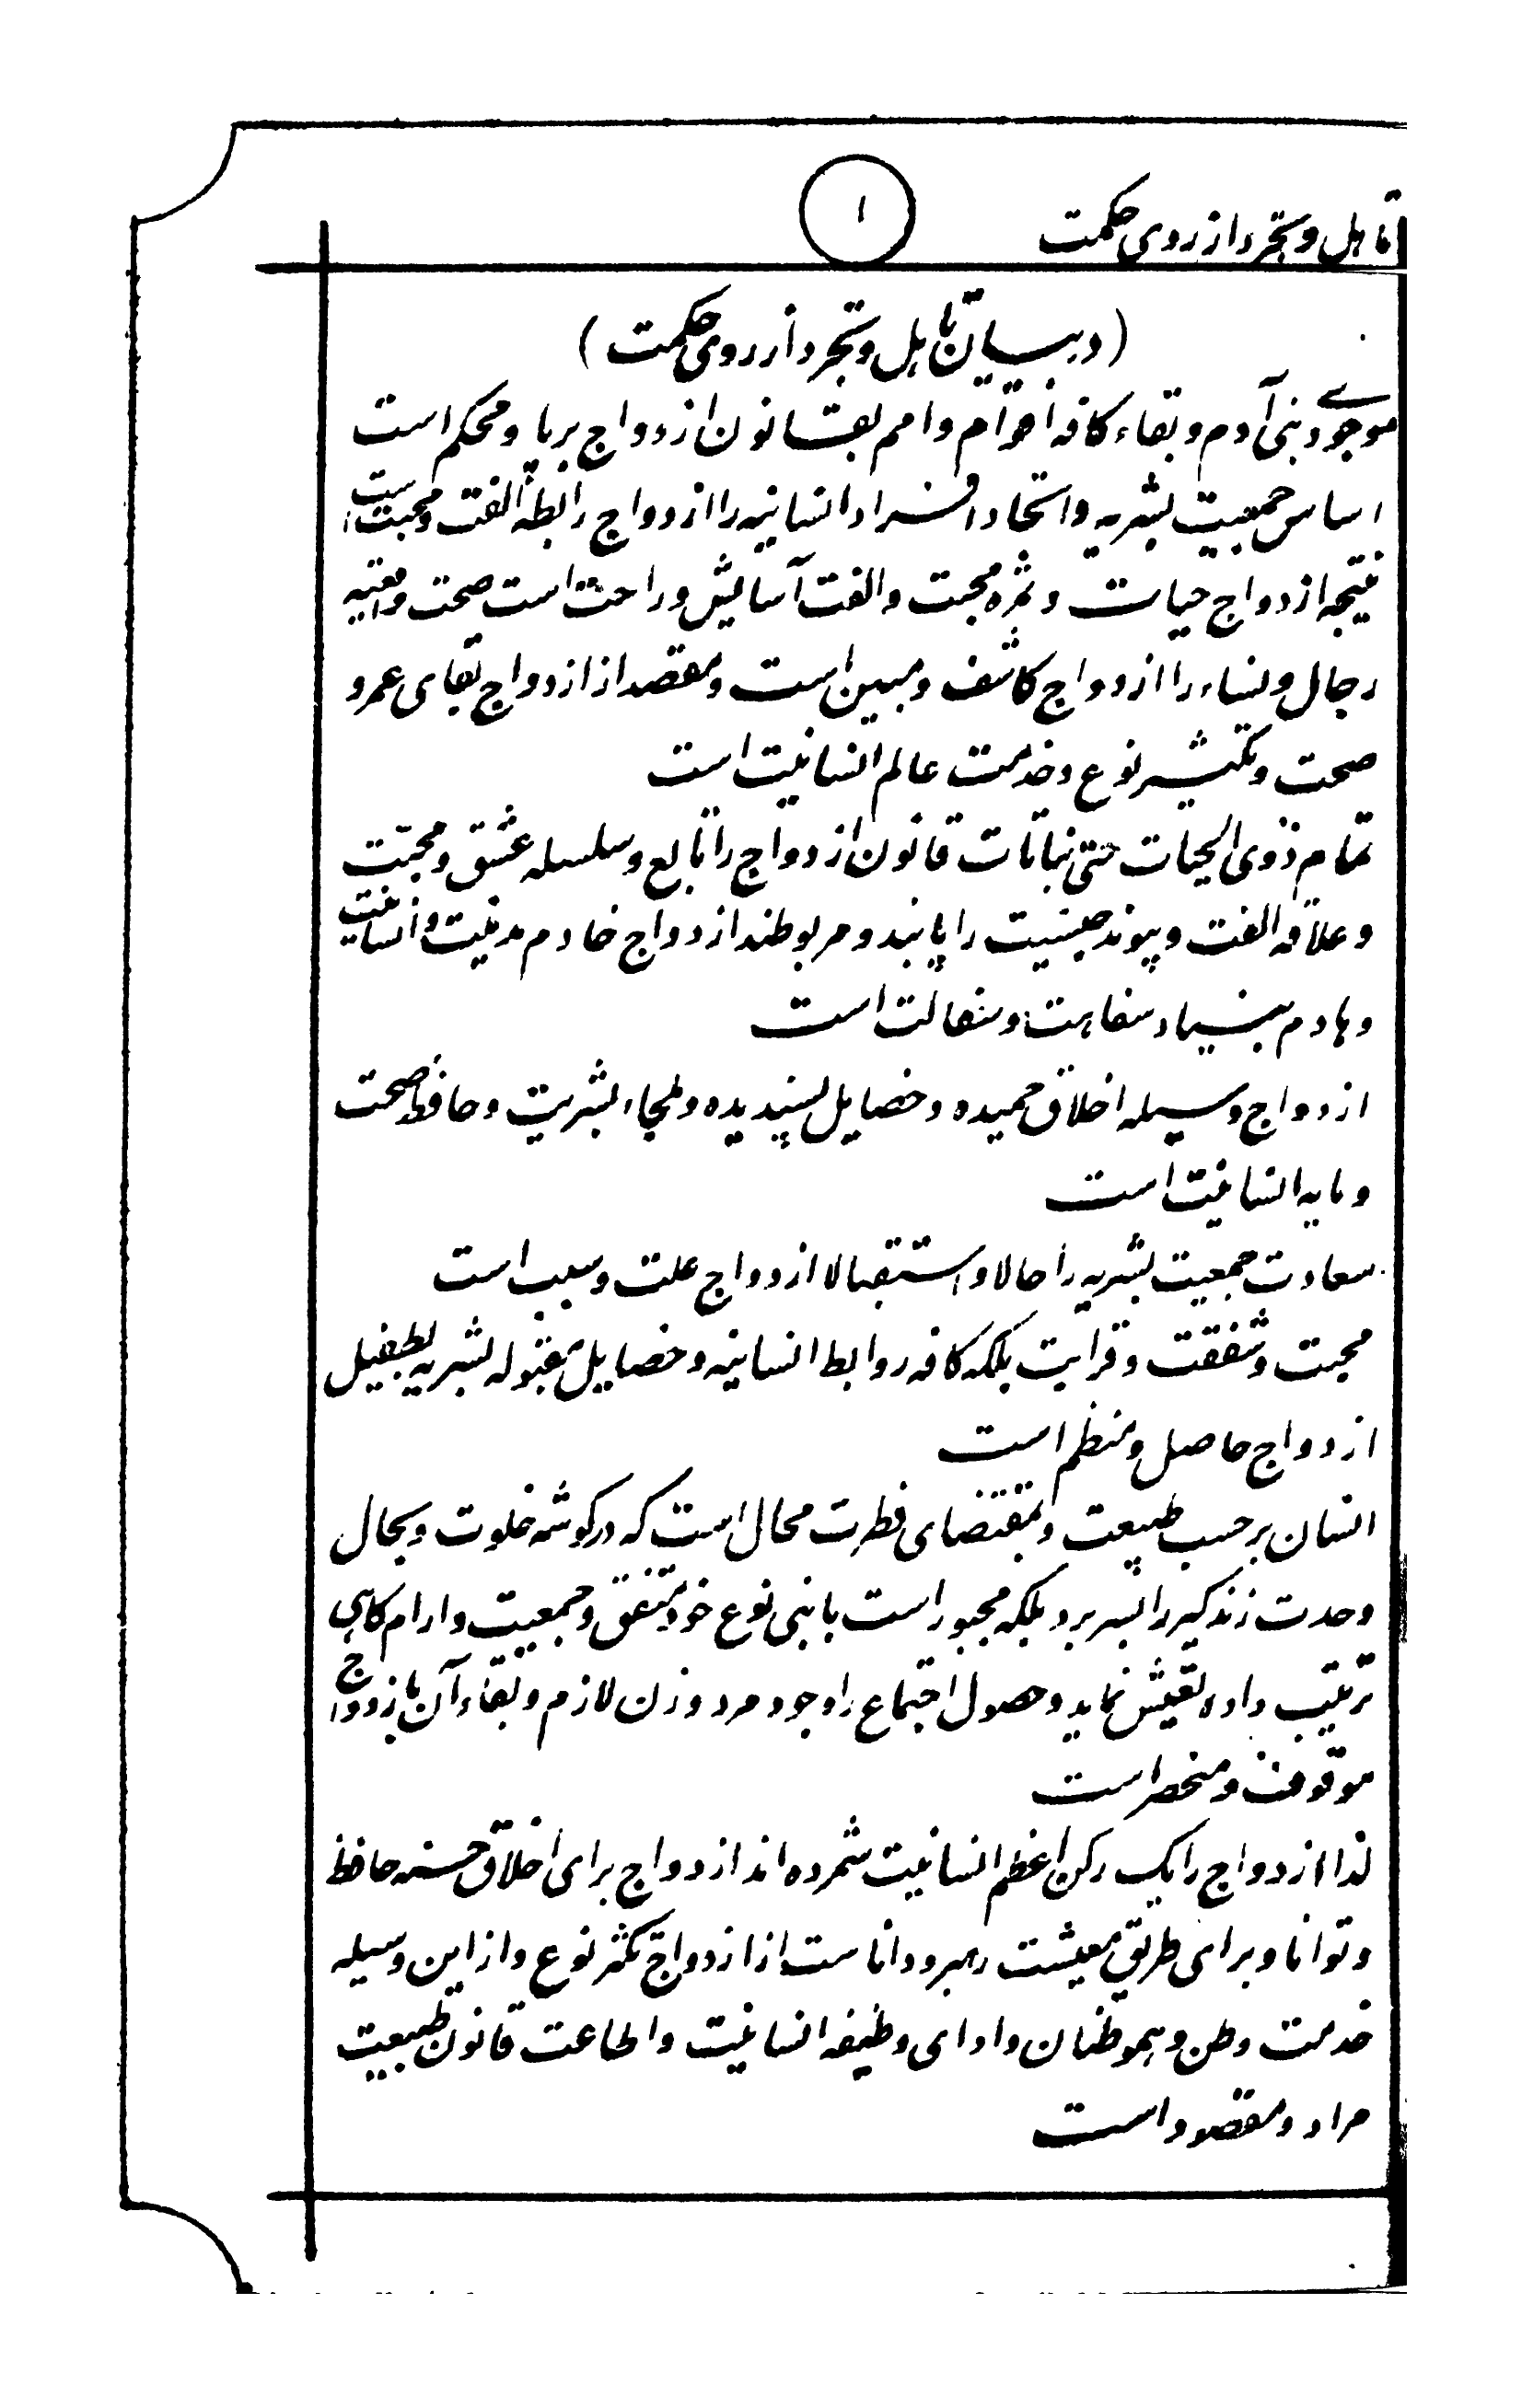 تاهل و تجرد از روی حکمت
۱
(در بیان تاهل و تجرد از روی حکمت)
موجودی بنی آدم و بقاء کافه اقوام و امم بقانون ازدواج برپا و محکم است
اساس جمعیت بشریه و اتحاد افراد انسانیه را ازدواج رابطهٔ الفت و محبت است
نتیجه ازدواج حیات و ثمره محبت و الفت آسایش و راحت است صحت و
رجال و نساء را ازدواج کاشف و مبین است و مقصد از ازدواج بقای عمر و
صحت و تکثیر نوع و خدمت عالم انسانیت است
تمام ذوی الحیات حتی نباتات قانون ازدواج را تابع و سلسله عشق و محبّت
و علاقه الفت و پیوند جنسیت را پابند و مربوطند ازدواج خادم مدنیت و انسانیت
و هادم بنیاد سفاهت و سفالت است
ازدواج وسیله اخلاق حمیده و خصایل پسندیده و ملجاء بشریت و حافظ صحت
و مایه انسانیت است
سعادت جمعیت بشریه را حالا و استقبالا ازدواج علت و سبب است
محبت و شفقت و قرابت بلکه کافه روابط انسانیه و خصایل مقبوله بشریه بطفیل
ازدواج حاصل و منظم است
انسان بر حسب طبیعت و بمقتضای فطرت محال است که در کوشه خلوت و بحال
وحدت زندکیرا بسر برد بلکه مجبور است با بنی نوع خود متفق و جمعیت و ارام کاهی
ترتیب داده تعیش نماید و حصول اجتماع را وجود مرد و زن لازم و بقاء آن بازدواج
موقوف و منحصر است
لذا ازدواج را یک رکن اعظم انسانیت شمرده اند ازدواج برای اخلاق حسنه حافظ
و توانا و برای طریق معیشت رهبر و داناست از ازدواج تکثر نوع و از این وسیله
خدمت وطن و هموطنان و ادای وظیفه انسانیت و اطاعت قانون طبیعت
مراد و مقصود است